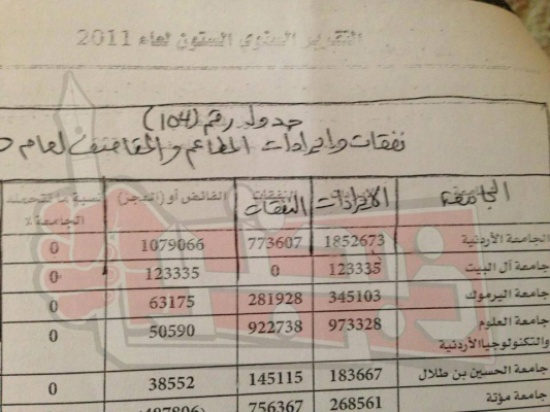 التقرير السنوي الستون لعام 2011
جدول رقم (104)
نفقات وايرادات المطاعم والمقاصف لعام
الجامعة الايرادات النفقات الفائض أو (العجز) نسبة ما تتحمله الجامعة %
الجامعة الأردنية 1852673 773607 1079066 0
جامعة آل البيت 123335 0 123335 0
جامعة اليرموك 345103 281928 63175 0
جامعة العلوم 973328 922738 50590 0
والتكنولوجيا الأردنية
جامعة الحسين بن طلال 183667 145115 38552 0
جامعة مؤتة 268561 756367 (487806) 0